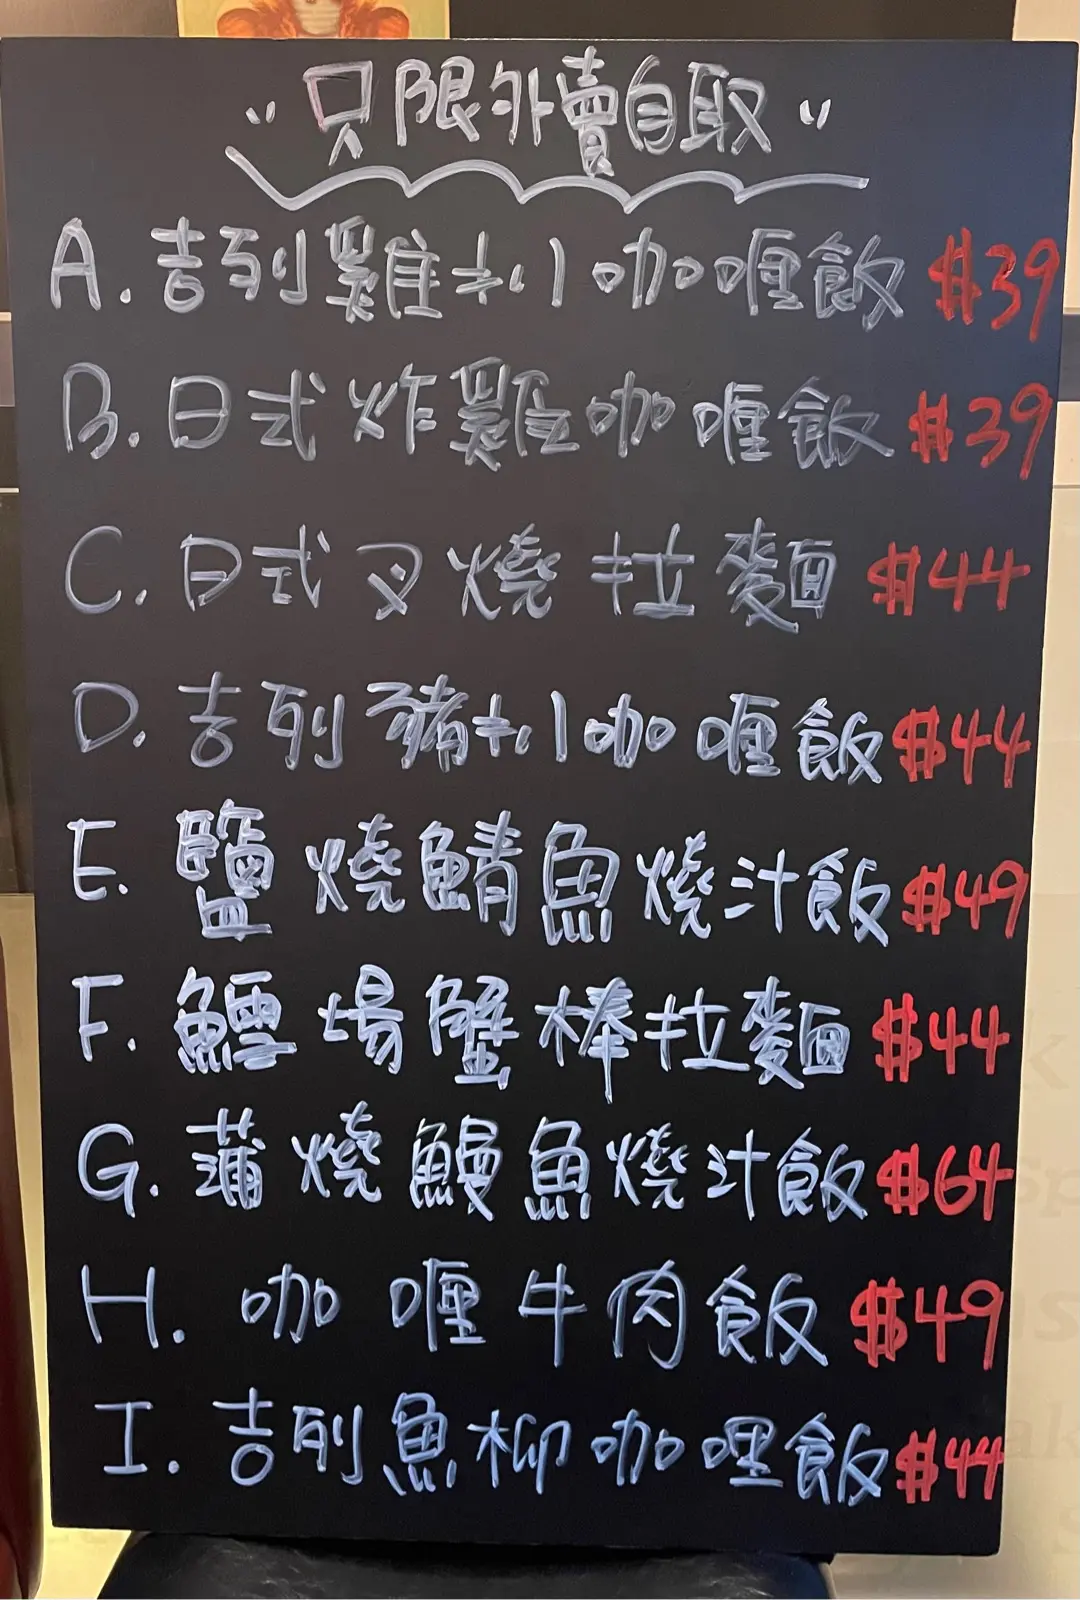 "只限外賣自取"
A. 吉列雞扒咖喱飯 $39
B. 日式炸雞咖喱飯 $39
C. 日式叉燒拉麵 $44
D. 吉列豬扒咖喱飯 $44
E. 鹽燒鯖魚燒汁飯 $49
F. 鱈場蟹棒拉麵 $44
G. 蒲燒鰻魚燒汁飯 $64
H. 咖喱牛肉飯 $49
I. 吉列魚柳咖哩飯 $44